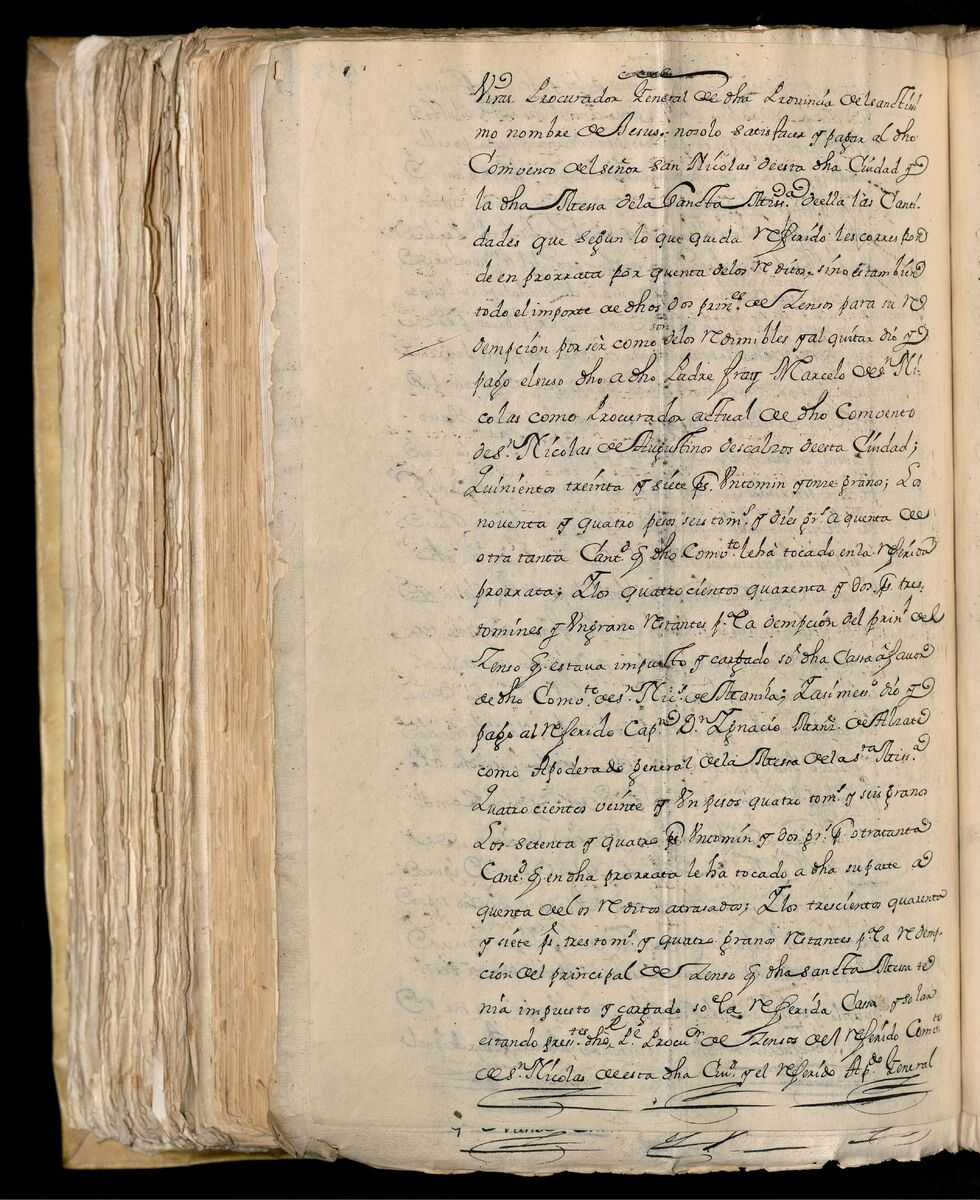 Viras Procurador General de dha Provincia del sanctissi
mo nombre de Jesus, no solo satisfacer y pagar al dho
Comvento del señor san Nicolas de esta dha Ciudad y
la dha Messa de la Sancta Miss.da de ella las Canti
dades que segun lo que queda referido les correspon
den en prorrata por quenta de los reditos, sino es tambien
todo el importe de dhos dos prin.es de Zensos para su re
dempcion por ser como son de los redimibles y al quitar dio y
pago el suso dho a dho Padre fray Marcelo de s.n Ni
colas como Procurador actual de dho Comvento
de s.n Nicolas de Augustinos descalzos de esta Ciudad;
Quinientos treinta y siete ps. Un tomin y onze granos; Los
noventa y quatro pesos seis tom.s y dies gr.s a quenta de
otra tanta Cant.d q dho Comv.to le hà tocado en la referida
prorrata; Y los quatrocientos quarenta y dos ps. tres
tomines y Un grano restantes p.a la dempcion del prin.l del
Zenso q estava impuesto y cargado so.e dha Cassa a favor
de dho Comv.to de s.n Nic.s de Manila; Y asimes.o dio y
pago al referido Cap.n D.n Ygnacio Marn.z de Alzate
como Apoderado general de la Messa de la s.ta Miss.a
Quatrocientos veinte y Un pesos quatro tom.s y seis granos
Los setenta y quatro ps Un tomin y dos gr.s p.r otra tanta
Cant.d q en dha prorrata le ha tocado a dha su parte a
quenta de los reditos atrasados; Y los trescientos quarenta
y siete ps. tres tom.s y quatro granos restantes p.a la redemp
ción del principal de Zenso q dha sancta Messa te
nia impuesto y cargado so.e la referida Cassa y solar
estando press.tes dho P.e Procu.or de Zensos del referido Comv.to
de s.n Nicolas de esta dha Ciu.d y el referido Ap.do General